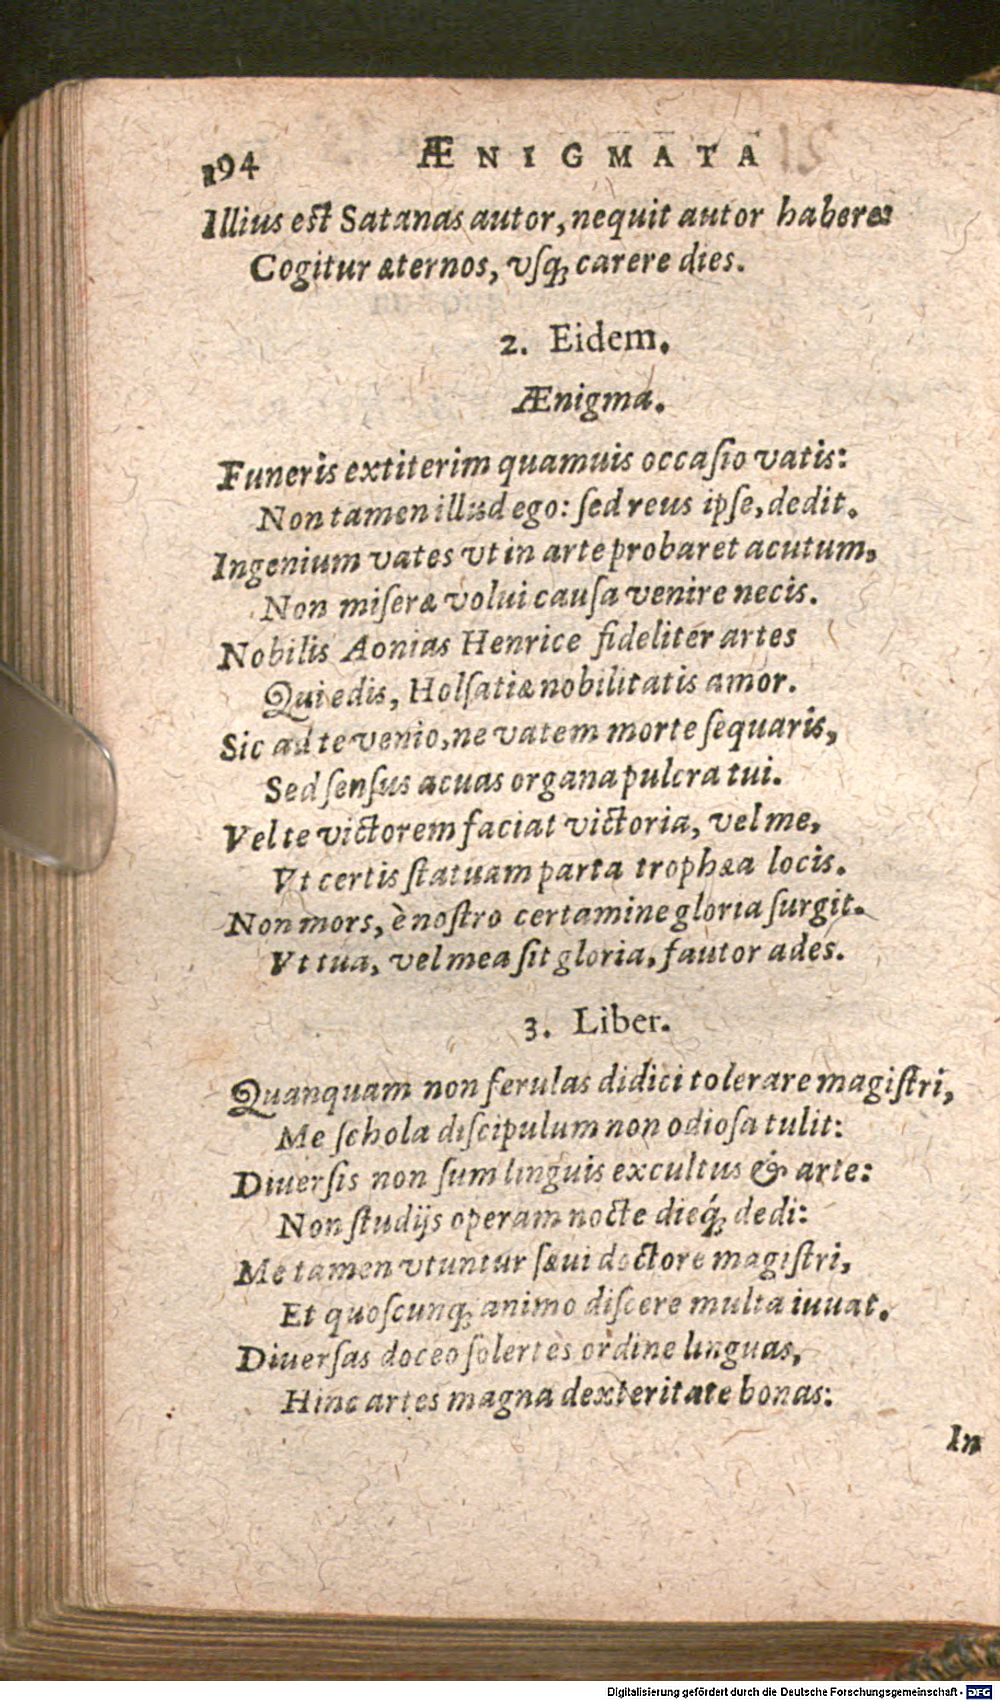 194 ÆNIGMATA
Illius est Satanas autor, nequit autor habere:
Cogitur æternos, vsq; carere dies.
2. Eidem.
Ænigma.
Funeris extiterim quamuis occasio vatis:
Non tamen illud ego: sed reus ipse, dedit.
Ingenium vates vt in arte probaret acutum,
Non miseræ volui causa venire necis.
Nobilis Aonias Henrice fideliter artes
Qui edis, Holsatiæ nobilitatis amor.
Sic ad te venio, ne vatem morte sequaris,
Sed sensus acuas organa pulcra tui.
Vel te victorem faciat victoria, vel me,
Vt certis statuam parta trophæa locis.
Non mors, è nostro certamine gloria surgit.
Vt tua, vel mea sit gloria, fautor ades.
3. Liber.
Quanquam non ferulas didici tolerare magistri,
Me schola discipulum non odiosa tulit:
Diuersis non sum linguis excultus & arte:
Non studijs operam nocte dieq́; dedi:
Me tamen vtuntur sæui doctore magistri,
Et quoscunq; animo discere multa iuuat.
Diuersas doceo solertes ordine linguas,
Hinc artes magna dexteritate bonas:
In
Digitalisierung gefördert durch die Deutsche Forschungsgemeinschaft - DFG